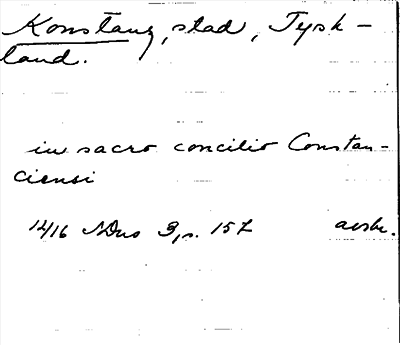 Konstanz, stad, Tysk-
land.
in sacro concilio Constan-
ciensi
1416 SDns 3, s. 157 avskr.